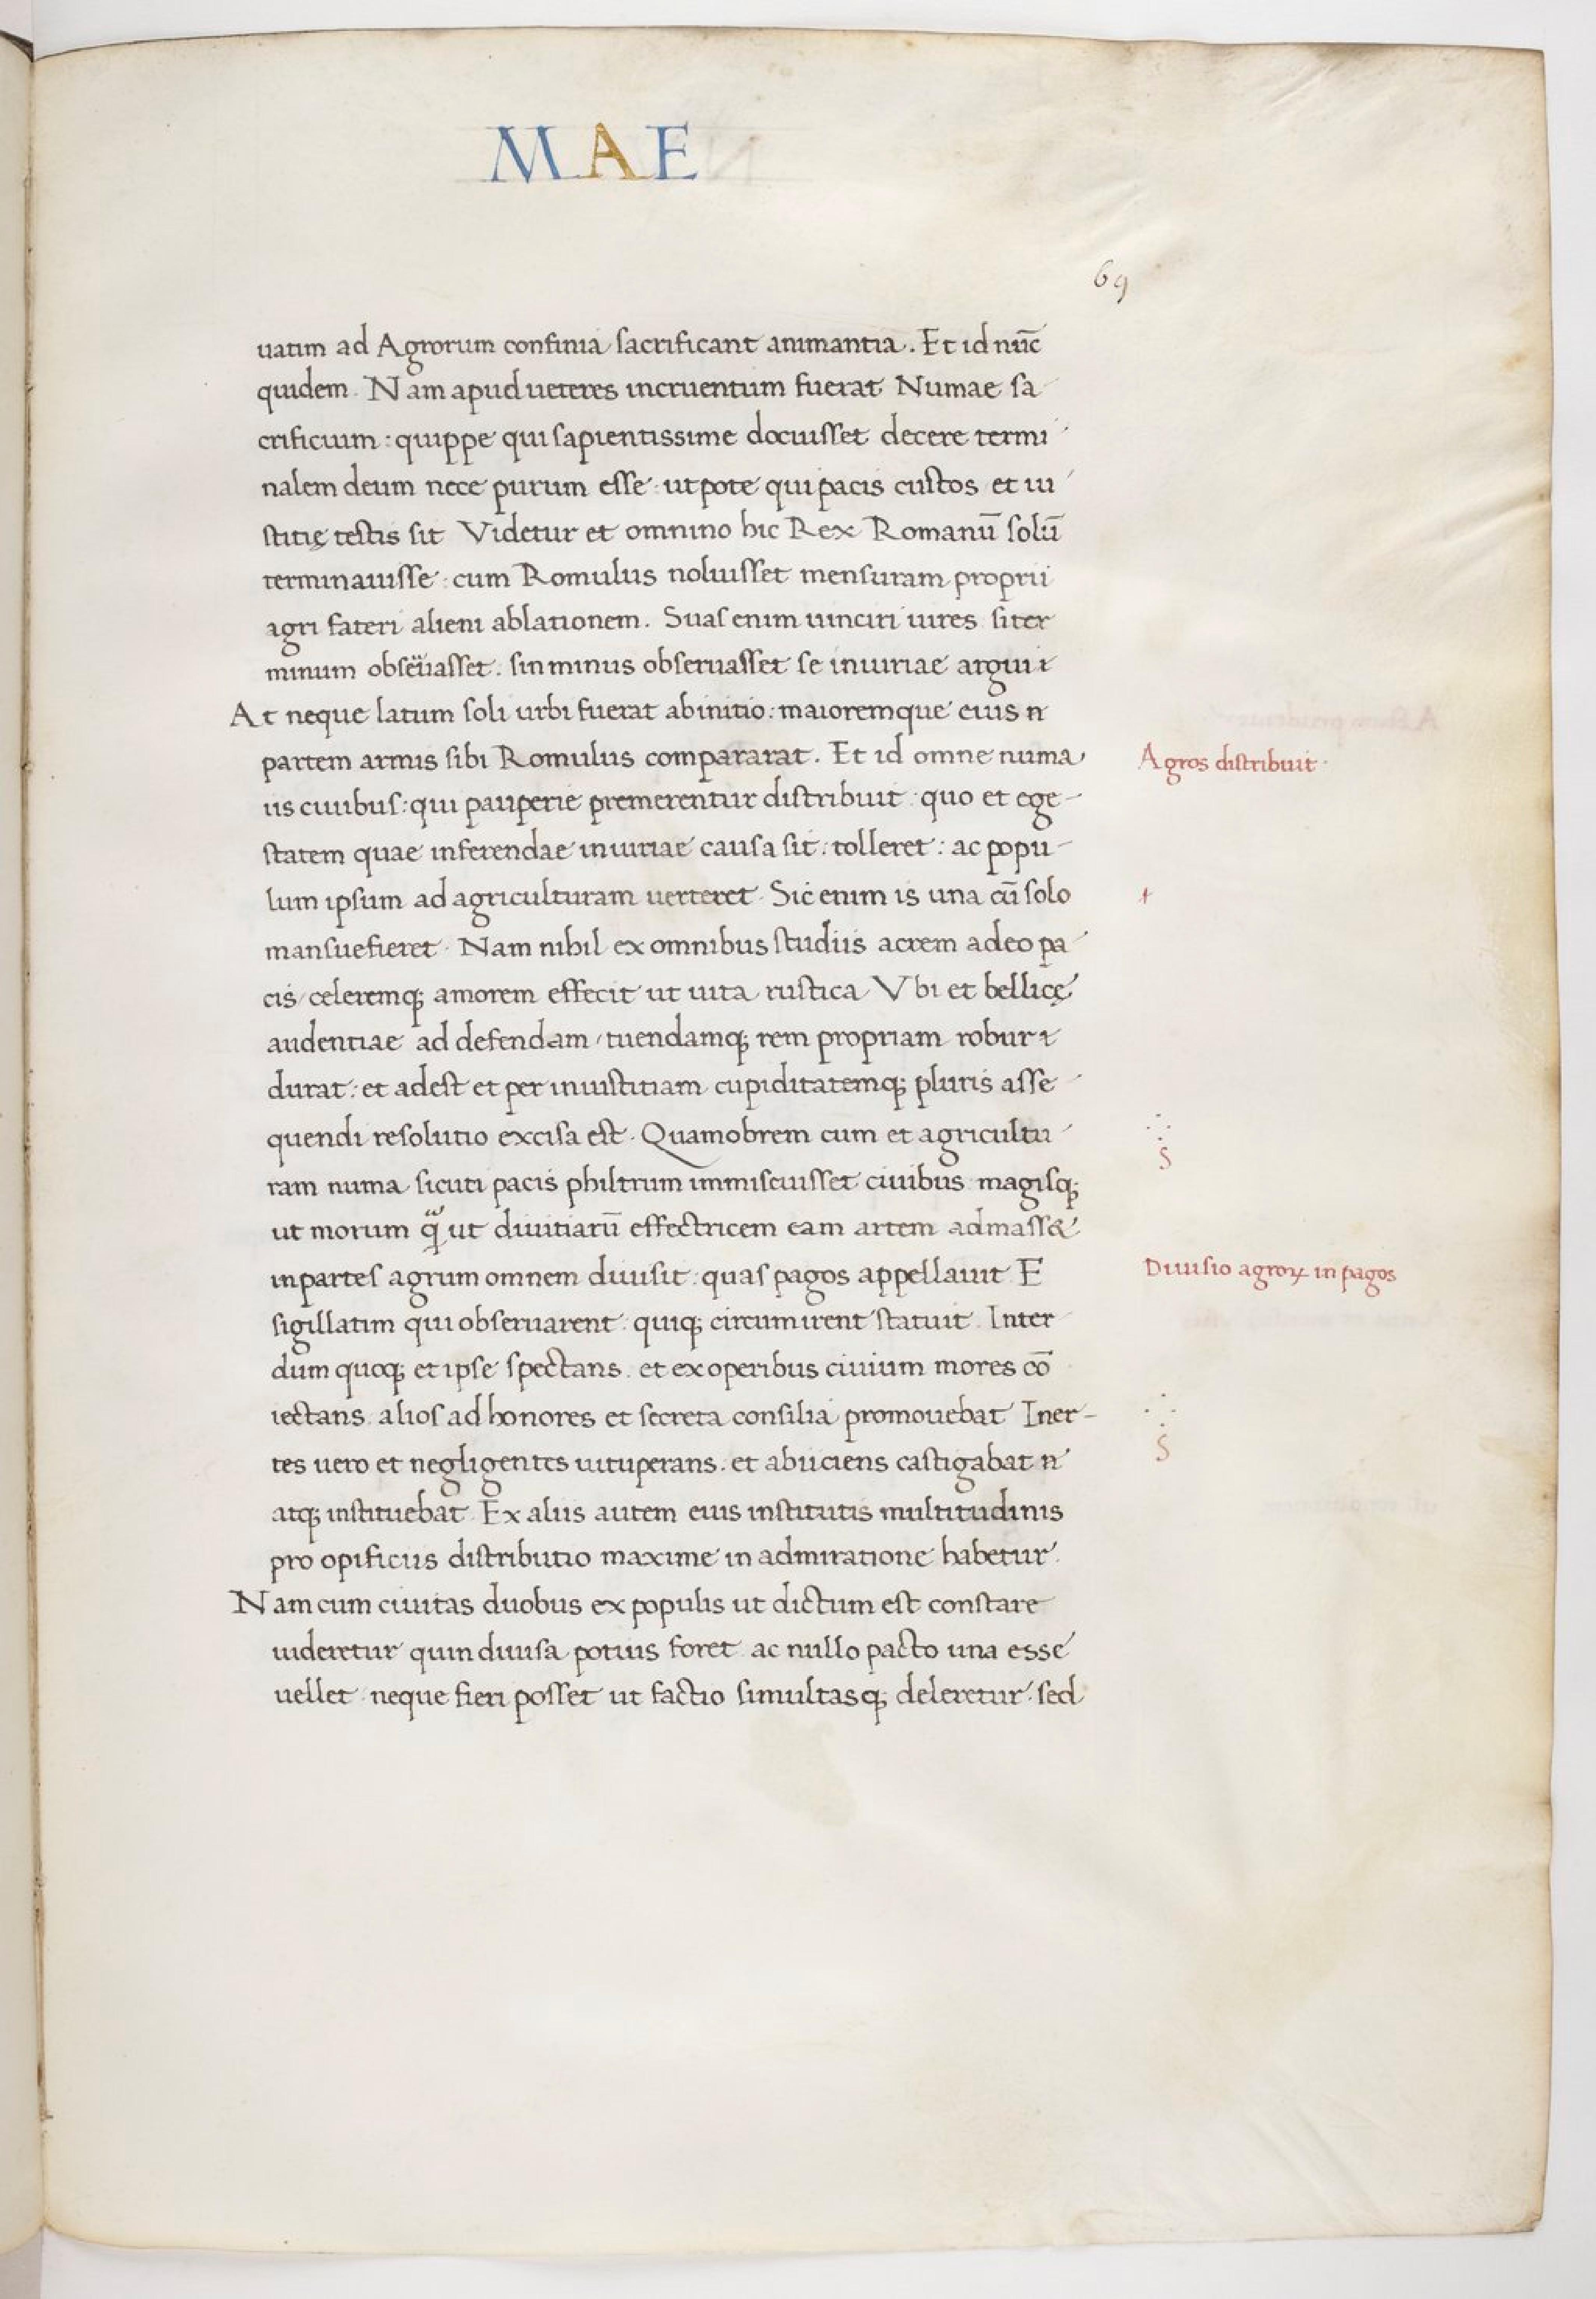 MAE
69
uatim ad Agrorum confinia sacrificant animantia. Et id nūc
quidem. Nam apud ueteres incruentum fuerat Numae sa
crificium: quippe qui sapientissime docuisset decere termi
nalem deum nece purum esse: utpote qui pacis custos et iu
stitię testis sit Videtur et omnino hic Rex Romanū solū
terminauisse: cum Romulus noluisset mensuram proprii
agri fateri alieni ablationem. Suas enim uinciri uires si ter
minum obseuasset. sin minus obseruasset se iniuriae argui
At neque latum soli urbi fuerat ab initio: maioremque eius
partem armis sibi Romulus compararat. Et id omne numa
iis ciuibus: qui pauperie premerentur distribuit: quo et ege-
statem quae inferendae iniuriae causa sit: tolleret: ac popu-
lum ipsum ad agriculturam uerteret. Sic enim is una cū solo
mansuefieret. Nam nihil ex omnibus studiis acrem adeo pa
cis/celeremq; amorem effecit ut uita rustica Vbi et bellicę
audentiae ad defendam/tuendamq; rem propriam robur
durat: et adest et per iniustitiam cupiditatemq; pluris asse-
quendi resolutio excisa est. Quamobrem cum et agricultu
ram numa sicuti pacis philtrum immiscuisset ciuibus magisq;
ut morum q̃ ut diuitiarū effectricem eam artem admass&
in partes agrum omnem diuisit: quas pagos appellauit E
sigillatim qui obseruarent: quiq; circumirent statuit. Inter
dum quoq; et ipse spectans. et ex operibus ciuium mores cō
iectans alios ad honores et secreta consilia promouebat Iner-
tes uero et negligentes uituperans. et abiiciens castigabat
atq; instituebat. Ex aliis autem eius institutis multitudinis
pro opificiis distributio maxime in admiratione habetur.
Nam cum ciuitas duobus ex populis ut dictum est constare
uideretur quin diuisa potius foret ac nullo pacto una esse
uellet neque fieri posset ut factio simultasq; deleretur. sed
Agros distribuit.
S
Diuisio agroꝝ in pagos
S